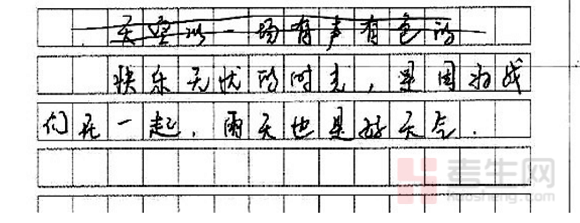 天空以一场有声有色的
快乐无忧的时光，是因为我
们在一起．雨天也是好天气．
考生网
kaosheng.com